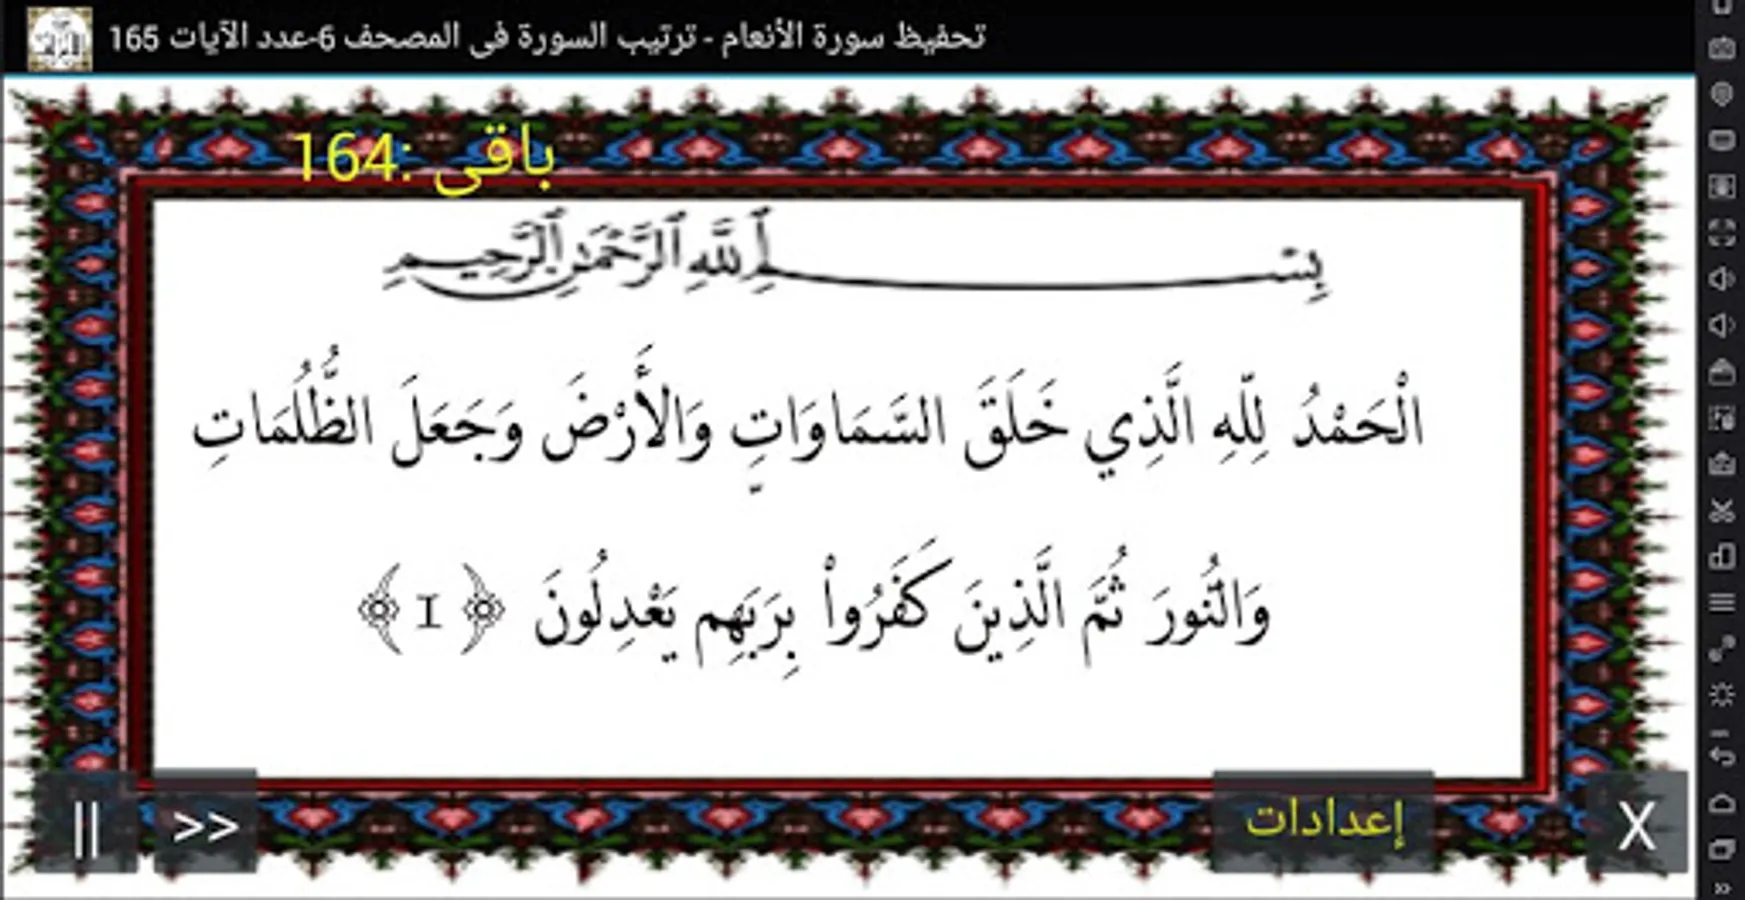 تحفيظ سورة الأنعام - ترتيب السورة فى المصحف 6-عدد الآيات 165
باقى :164
بِسْمِ ٱللَّهِ ٱلرَّحْمَٰنِ ٱلرَّحِيمِ
الْحَمْدُ لِلّهِ الَّذِي خَلَقَ السَّمَاوَاتِ وَالأَرْضَ وَجَعَلَ الظُّلُمَاتِ
وَالنُّورَ ثُمَّ الَّذِينَ كَفَرُواْ بِرَبِّهِم يَعْدِلُونَ ﴿1﴾
|| >> إعدادات X